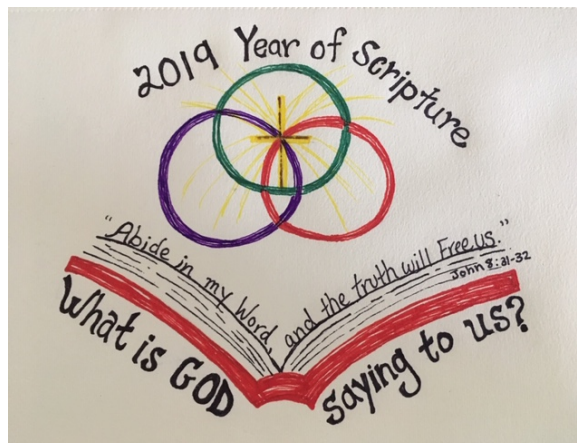 2019 Year of Scripture
"Abide in my Word, and the truth will Free us."
John 8:31-32
What is GOD saying to us?